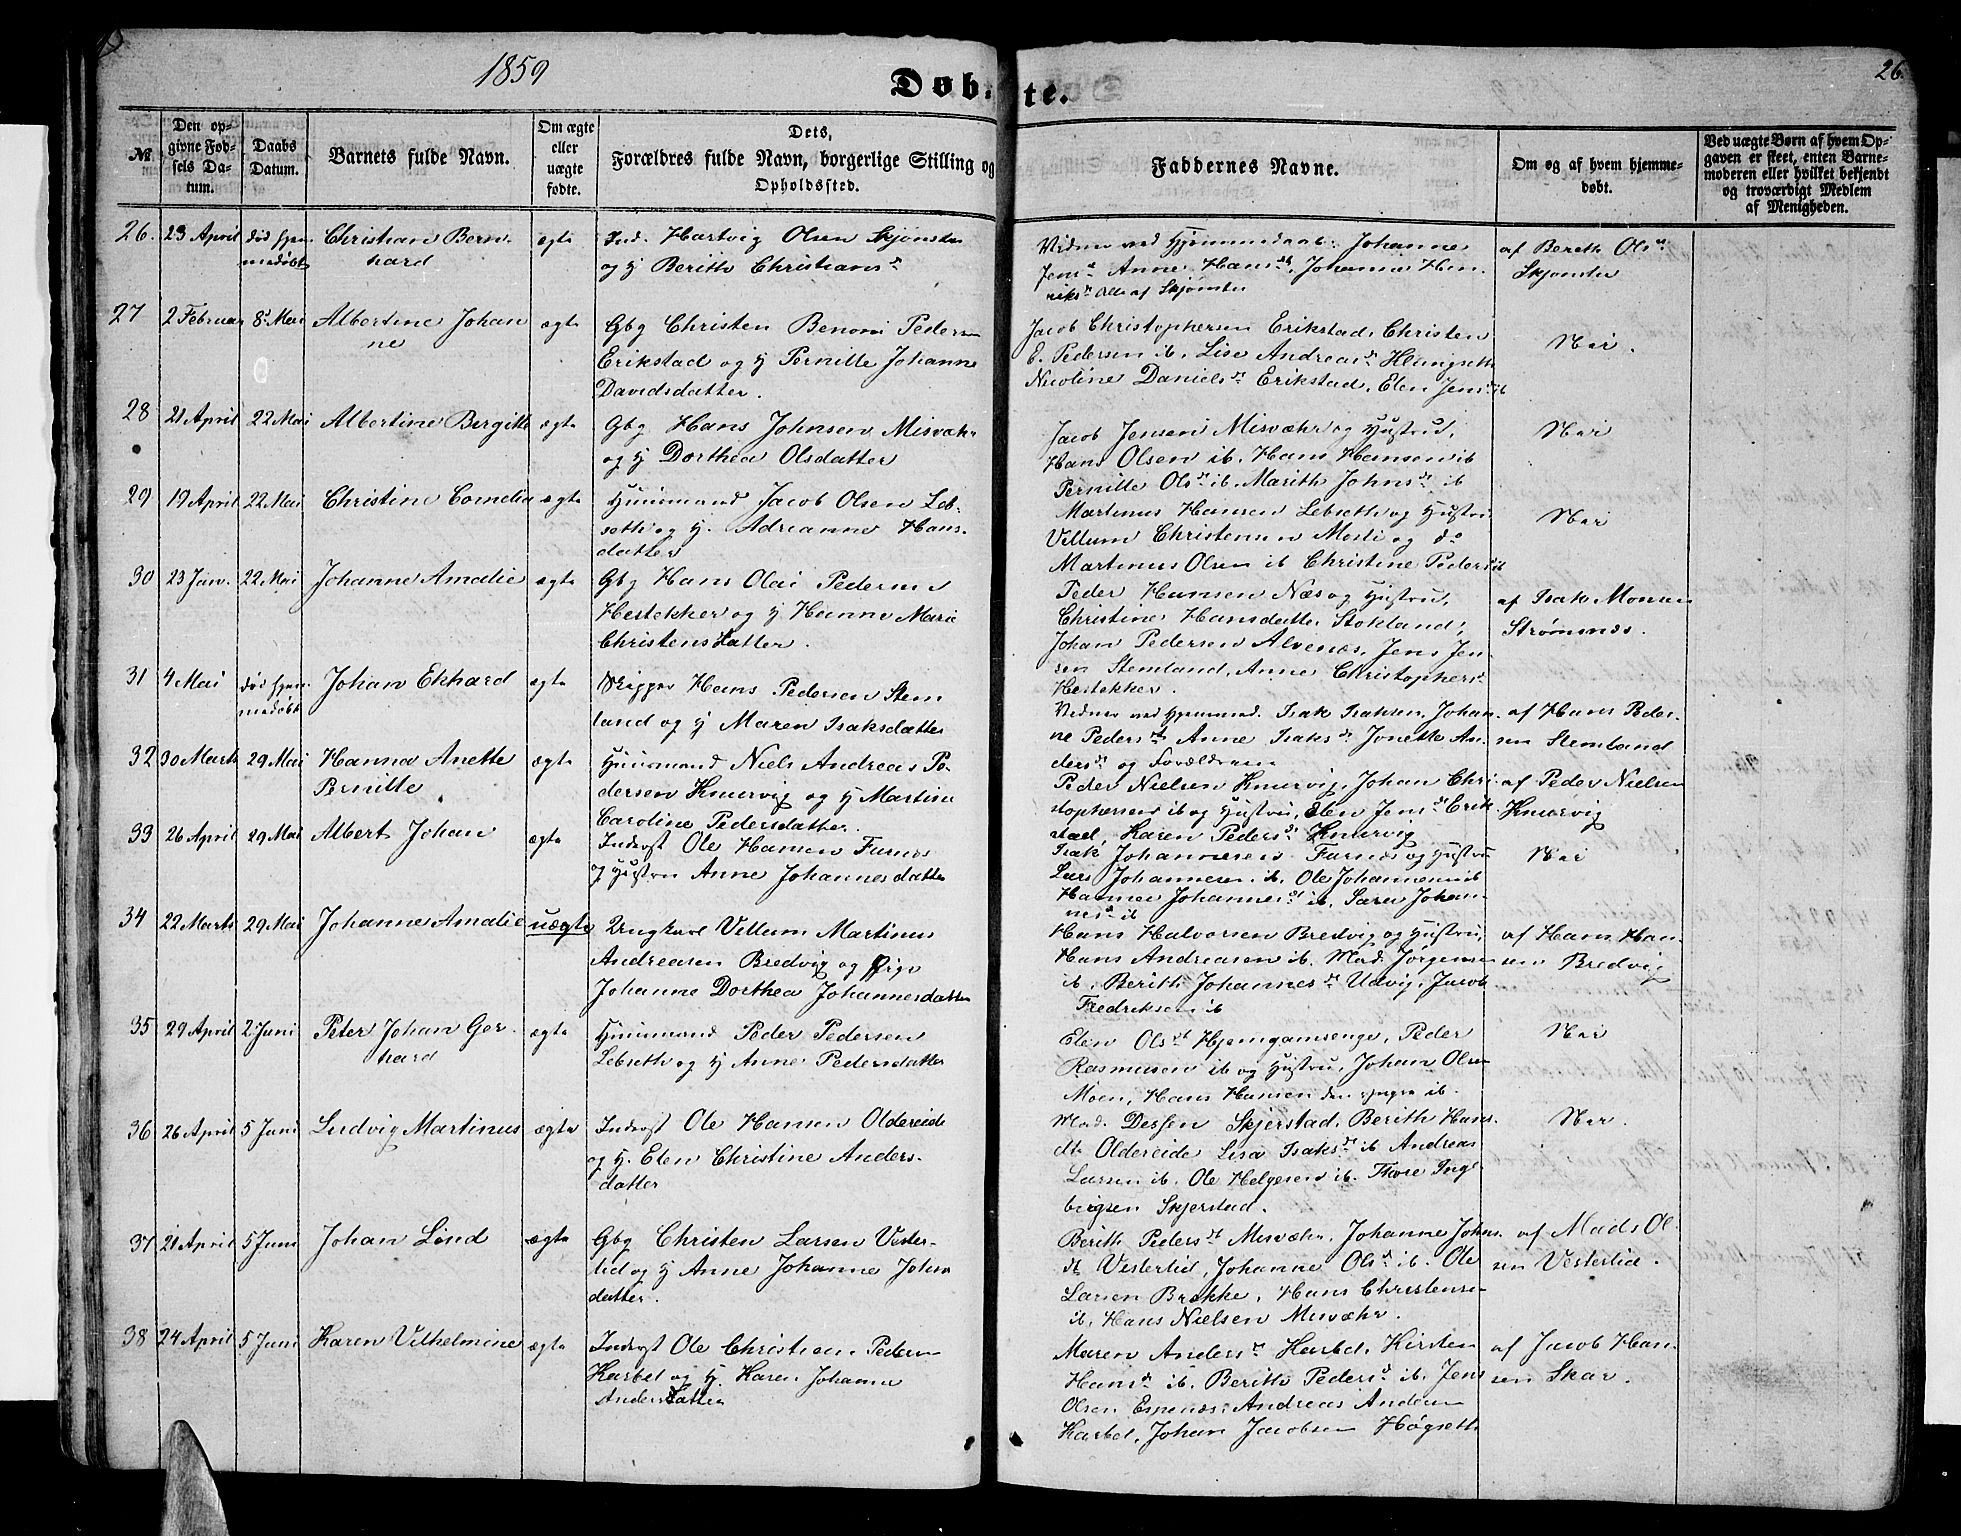 1859
Døbte.
26.
№
Den op-
givne Fød-
sels Da-
tum.
Daabs
Datum.
Barnets fulde Navn.
Om ægte
eller
uægte
fødte.
Dets,
Forældres fulde Navn, borgerlige Stilling og
Opholdssted.
Faddernes Navne.
Om og af hvem hjemme-
døbt.
Ved uægte Børn af hvem Op-
gaven er skeet, enten Barne-
moderen eller hvilket bekjendt
og troværdigt Medlem
af Menigheden.
26. 23 April død hjem
medøbt
Christian Bern
hard
ægte
Ind. Hartvig Olsen Skjønstu
og H Berith Christiansd
Vidner ved Hjemmedaab: Johanne
Jensd Anne Hansdt, Johanna Hen
riksd Alle af Skjønstu
af Berith Olsd
Skjønstu
27 2 Februar 8d Mai
Albertine Johan
ne
ægte
Gbg Christen Benoni Pedersen
Erikstad og H Pernille Johanne
Davidsdatter.
Jacob Christophersen Erikstad, Christen
E. Pedersen ib. Lise Andreasd Klungseth
Nicoline Danielsdt Erikstad, Elen Jensd ib
Nei.
28 21 April 22 Mai
Albertine Bergitte
ægte
Gbg Hans Johnsen Misvær
og H Dorthea Olsdatter
Jacob Jensen Misvæhr og Hustru,
Hans Olsen ib. Hans Hansen ib
Pernille Olsdt ib. Marith Johnsdt ib
Nei
29 19 April 22 Mai
Christine Cornelia
ægte
Huusmand Jacob Olsen Leb-
seth og H. Adrianne Hans-
datter
Martinus Hansen Lebseth og Hustru
Villum Christensen Mosli og do
Martinus Olsen ib Christine Pedersd ib
Nei
30 23 Jan. 22 Mai
Johanne Amalie
ægte
Gbg Hans Olai Pedersen
Hestekker og H Hanna Marie
Christensdatter.
Peder Hansen Næs og Hustru,
Christine Hansdatter Stokland,
Johan Pedersen Alvenæs, Jens Jen-
sen Stemland, Anne Christophersd
Hestekker.
af Isak Monsen
Strømsnæs.
31 4 Mai død hjem
medøbt
Johan Ekhard
ægte
Skipper Hans Pedersen Stem
land og H Maren Isaksdatter
Vidner ved Hjemmed. Isak Isaksen, Johan-
ne Pedersdt Anne Isaksd Jonette An-
dersdt og Forældrene
af Hans Peder-
sen Stemland
32 30 Marts 29 Mai
Hanna Anette
Pernille
ægte
Huusmand Niels Andreas Pe-
dersen Knarvig og H Martine
Caroline Pedersdatter.
Peder Nielsen Knarvig, Johan Chri-
stophersen ib og Hustru, Elen Jensd Erik-
stad, Karen Pedersd Knarvig
af Peder Nielsen
Knarvig
33 26 April 29 Mai
Albert Johan
ægte
Inderst Ole Hansen Furnes
og Hustru Anne Johannesdatter
Isak Johannesen Furnes og Hustru
Lars Johannesen ib. Ole Johannesen ib
Hanna Johannesd ib. Saren Johan-
nesd ib
Nei
34 22 Marts 29 Mai
Johanne Amalie
uægte
Ungkarl Villum Martinus
Andreasen Bredvig og Pige
Johanne Dorthea Johannesdatter
Hans Halvorsen Bredvig og Hustru,
Hans Andreasen ib. Mad. Jørgensen
ib. Berith Johannesdt Udvig, Jacob
Fredriksen ib
af Hans Han-
sen Bredvig
35 29 April 2 Juni
Peter Johan Ger-
hard
ægte
Huusmand Peder Pedersen
Lebseth og H Anne Pedersdatter
Elen Olsdt Hjemgamsenge, Peder
Rasmusen ib og Hustru, Johan Olsen
Moen, Hans Hansen den yngre ib.
Nei
36 26 April 5 Juni
Ludvig Martinus
ægte
Inderst Ole Hansen Oldereide
og H. Elen Christine Anders-
datter
Mad. Dessen Skjerstad, Berith Hans-
dt Oldereide Lisa Isaksdt ib Andreas
Larsen ib. Ole Helgesen ib. Thore Inge-
brigsen Skjerstad.
Nei.
37 21 April 5 Juni
Johan Lind
ægte
Gbg Christen Larsen Vester-
lid og H Anne Johanne Johns
datter.
Berith Pedersdt Misvæhr, Johanne Johns-
dt Vesterlid, Johanne Olsd ib. Ole
Larsen Brække, Hans Christensen
ib, Hans Nielsen Misvæhr.
af Mads Ol-
sen Vesterlid.
38 24 April 5 Juni
Karen Vilhelmine
ægte
Inderst Ole Christian Pedersen
Karbel og H. Karen Johanna
Andersdatter
Maren Andersdt Karbel, Kirsten
Hansdt ib. Berith Pedersd ib. Jens
Olsen Espenæs, Andreas Andersen
Karbel, Johan Jacobsen Høgseth
af Jacob Han-
sen Skar.